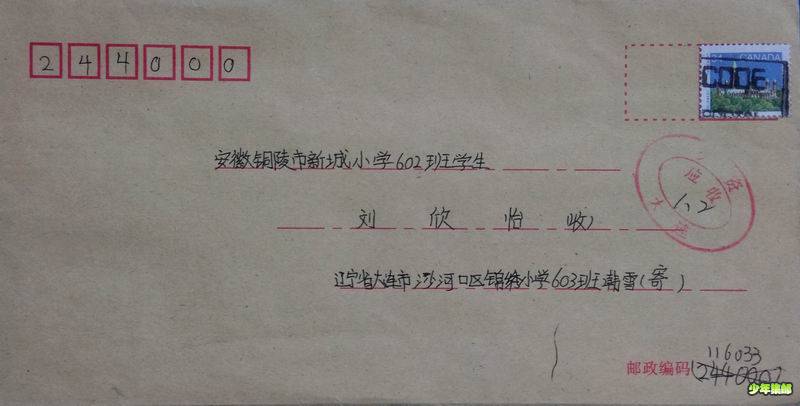 244000
34 CANADA
CODE
安徽铜陵市新城小学602班学生
应收
1.2
刘欣怡收
辽宁省大连市沙河口区锦绣小学603班韩雪(寄)
116033
邮政编码
少年集邮